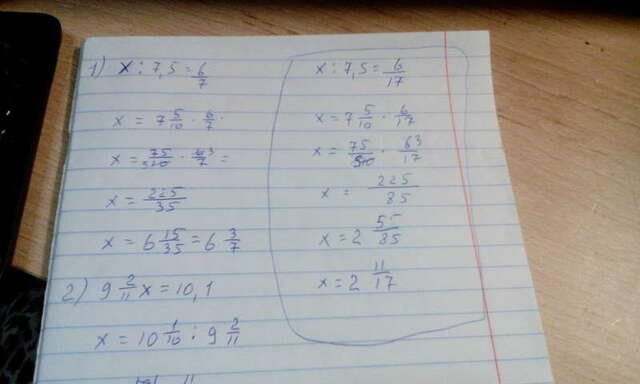 1) x : 7,5 = 6/7
x = 7 5/10 · 6/7
x = 75/10 5 · 6 3/7 =
x = 225/35
x = 6 15/35 = 6 3/7
2) 9 2/11 x = 10,1
x = 10 1/10 : 9 2/11
x : 7,5 = 6/17
x = 7 5/10 · 6/17
x = 75/10 5 · 6 3/17
x = 225/85
x = 2 55/85
x = 2 11/17